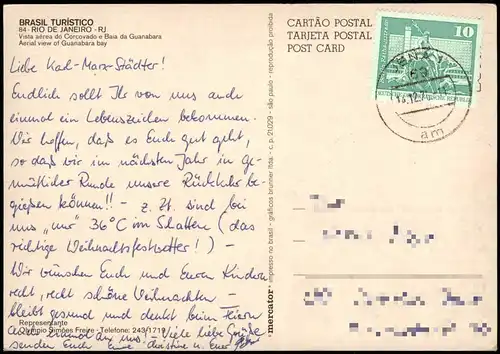 BRASIL TURÍSTICO
84 - RIO DE JANEIRO - RJ
Vista aérea do Corcovado e Baía da Guanabara
Aerial view of Guanabara bay
Liebe Karl-Marx-Städter!
Endlich sollt Ihr von uns auch
einmal ein Lebenszeichen bekommen.
Wir hoffen, daß es Euch gut geht,
so daß wir im nächsten Jahr in ge-
mütlicher Runde unsere Rückkehr be-
gießen können!! - z. Zt. sind bei
uns "nur" 36°C im Schatten (das
richtige Weihnachtsfestwetter!) -
Wir wünschen Euch und Euren Kindern
recht, recht schöne Weihnachten -
bleibt gesund und denkt beim Feiern
auch einmal an uns! - Viele liebe Grüße
senden Euch Eure Christine u. Euer
Representante
Olympio Simões Freire - Telefone: 243/1719
mercator
impresso no brasil - gráficos brunner ltda. - c. p. 21.029 - são paulo - reprodução proibida
CARTÃO POSTAL
TARJETA POSTAL
POST CARD
10
JENA 1
69
am